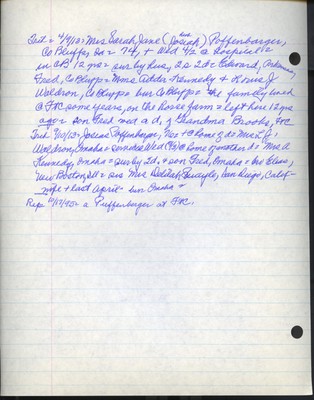 4/9/13 = Mrs Sarah Jane (Josiah) Poffenberger,
Co Bluffs, Ia = 74, + Wed 4/2 @ hospital =
in CB 12 yrs = sur by hus, 2 s 2 d = Edward,
Fred, Co Bluffs = Mrs Addie Kennedy & Mrs J
Waldron, Co Bluffs = bur Co Bluffs = the family lived
@ FtC some years, on the Rowe farm = left here 12 yrs
ago = son Fred md a d, of Grandma Brooks, FtC
9/10/13 = Josiah Poffenberger, = @ home of d = Mrs L J
Waldron, Omaha = services Wed @ home of another d = Mrs A
Kennedy, Omaha = sur by 2 d, & son Fred, Omaha = bro Elias,
New Boston, Ill = sis Mrs Delilah, San Diego, Calif -
wife + last April = bur Omaha =
Rep = a Puffenbarger at FtC.